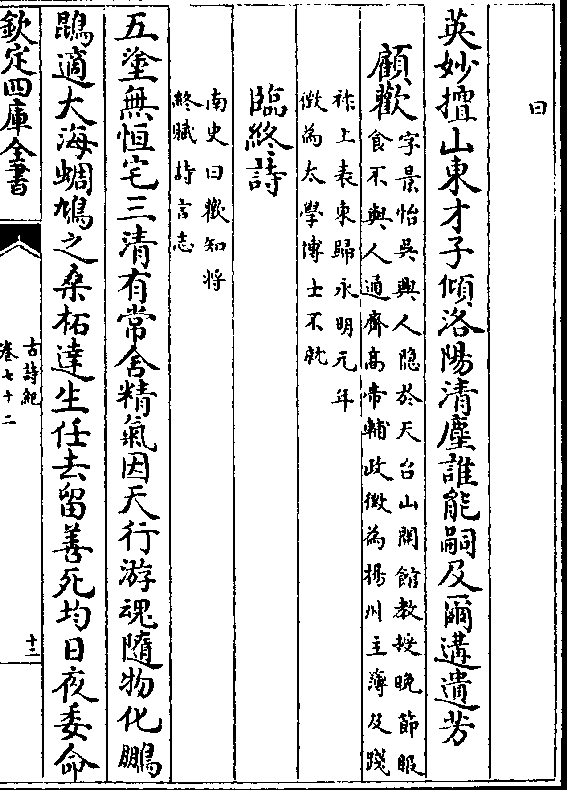 曰
英妙擅山東才子傾洛陽清塵誰能嗣及爾遘遺芳
顧歡
字景怡吳興人隐於天台山開館教授晚節服
食不與人通齊高帝輔政徴為揚州主簿及踐
祚上表東歸永明元年
徴為太學博士不就
臨終詩
南史曰歡知将
終賦詩言志
五塗無恒宅三清有常舍精氣因天行游魂隨物化鵬
鵾適大海蜩鳩之桑柘達生任去留善死均日夜委命
欽定四庫全書
古詩紀
卷七十二
十三